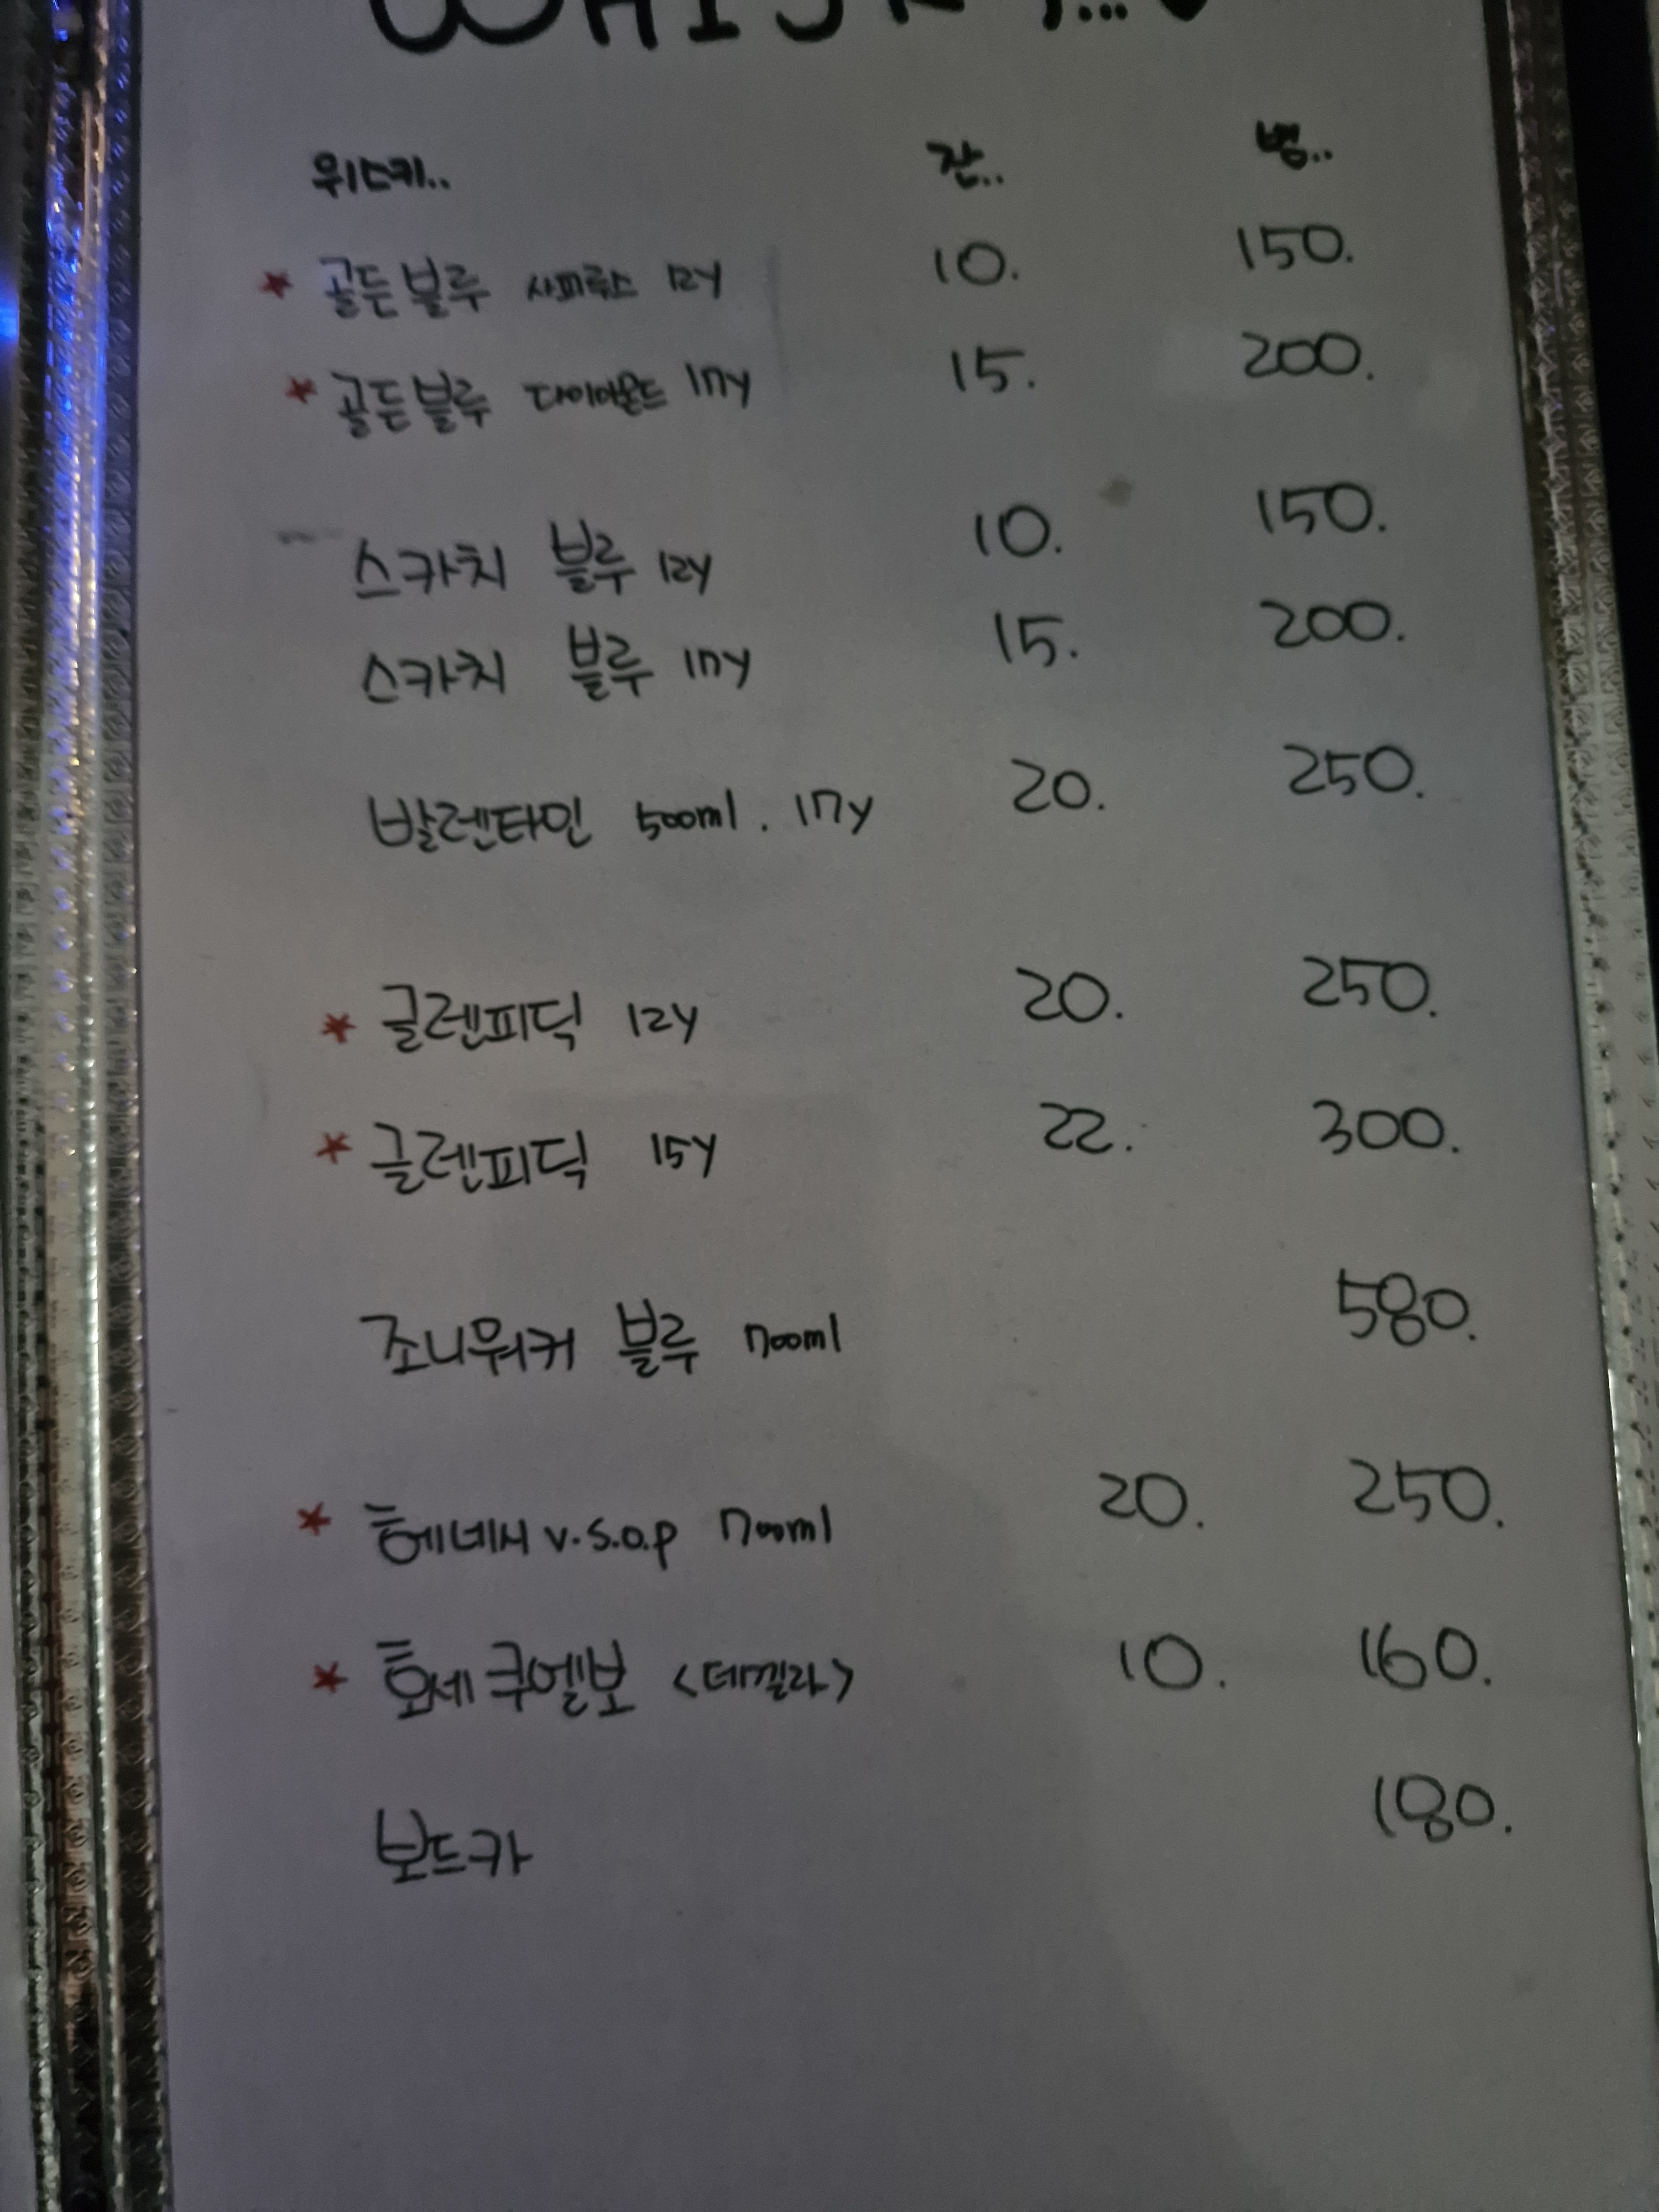 WHISKY...
위스키.. 잔.. 병..
* 골든블루 사피루스 12y 10. 150.
* 골든블루 다이아몬드 17y 15. 200.
스카치 블루 12y 10. 150.
스카치 블루 17y 15. 200.
발렌타인 500ml. 17y 20. 250.
* 글렌피딕 12y 20. 250.
* 글렌피딕 15y 22. 300.
조니워커 블루 700ml 580.
* 헤네시 v.s.o.p 700ml 20. 250.
* 호세쿠엘보 <데낄라> 10. 160.
보드카 180.